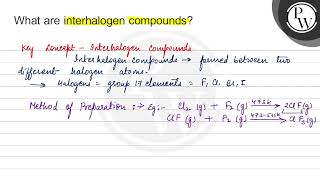 What are interhalogen compounds?
PW
Key Concept - Interhalogen Compounds
Interhalogen compounds → formed between two
different halogen atoms.
→ Halogens = group 17 elements = F, Cl, Br, I.
Method of Preparation :→ Eg:- Cl2 (g) + F2 (g) 473K → 2ClF(g)
ClF (g) + F2 (g) → ClF3 (g)